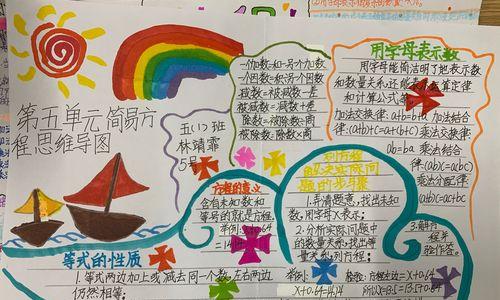 第五单元 简易方
程思维导图
五(1)班
林靖霏
5号
一个加数=和-另一个加数
一个因数=积÷另一个因数
减数=被减数-差
被减数=减数+差
除数=被除数÷商
被除数=除数×商
用字母表示数
用字母能简洁明了地表示数
和数量关系,还能表示运算定律
和计算公式等。
加法交换律:a+b=b+a 加法结合
律:(a+b)+c=a+(b+c) 乘法交换律:
ab=ba 乘法结合
律:(ab)c=a(bc)
乘法分配律:
(a+b)c=ac+bc
方程的意义
含有未知数和
等号的就是方程。
举例:x+0.64
=14.14
列方程
解决实际问
题的步骤
1.弄清题意,找出未知
数,用字母X表示;
2.分析实际问题中
的数量关系,找出等
量关系,列方程;
3.解方
程并
检验作答。
等式的性质
1.等式两边加上或减去同一个数,左右两边
仍然相等;
举例:
X+0.64=14.14
检验:方程左边=X+0.64
=13.5+0.64